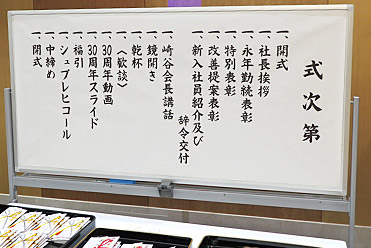 式次第
一、開式
一、社長挨拶
一、永年勤続表彰
一、特別表彰
一、改善提案表彰
一、新入社員紹介及び
辞令交付
一、崎谷会長講話
一、鏡開き
一、乾杯
一、〈歓談〉
一、30周年動画
一、30周年スライド
一、福引
一、シュプレヒコール
一、中締め
一、閉式